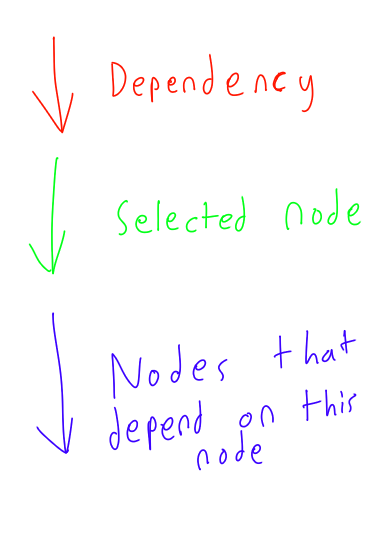 Dependency
Selected node
Nodes that
depend on this
node